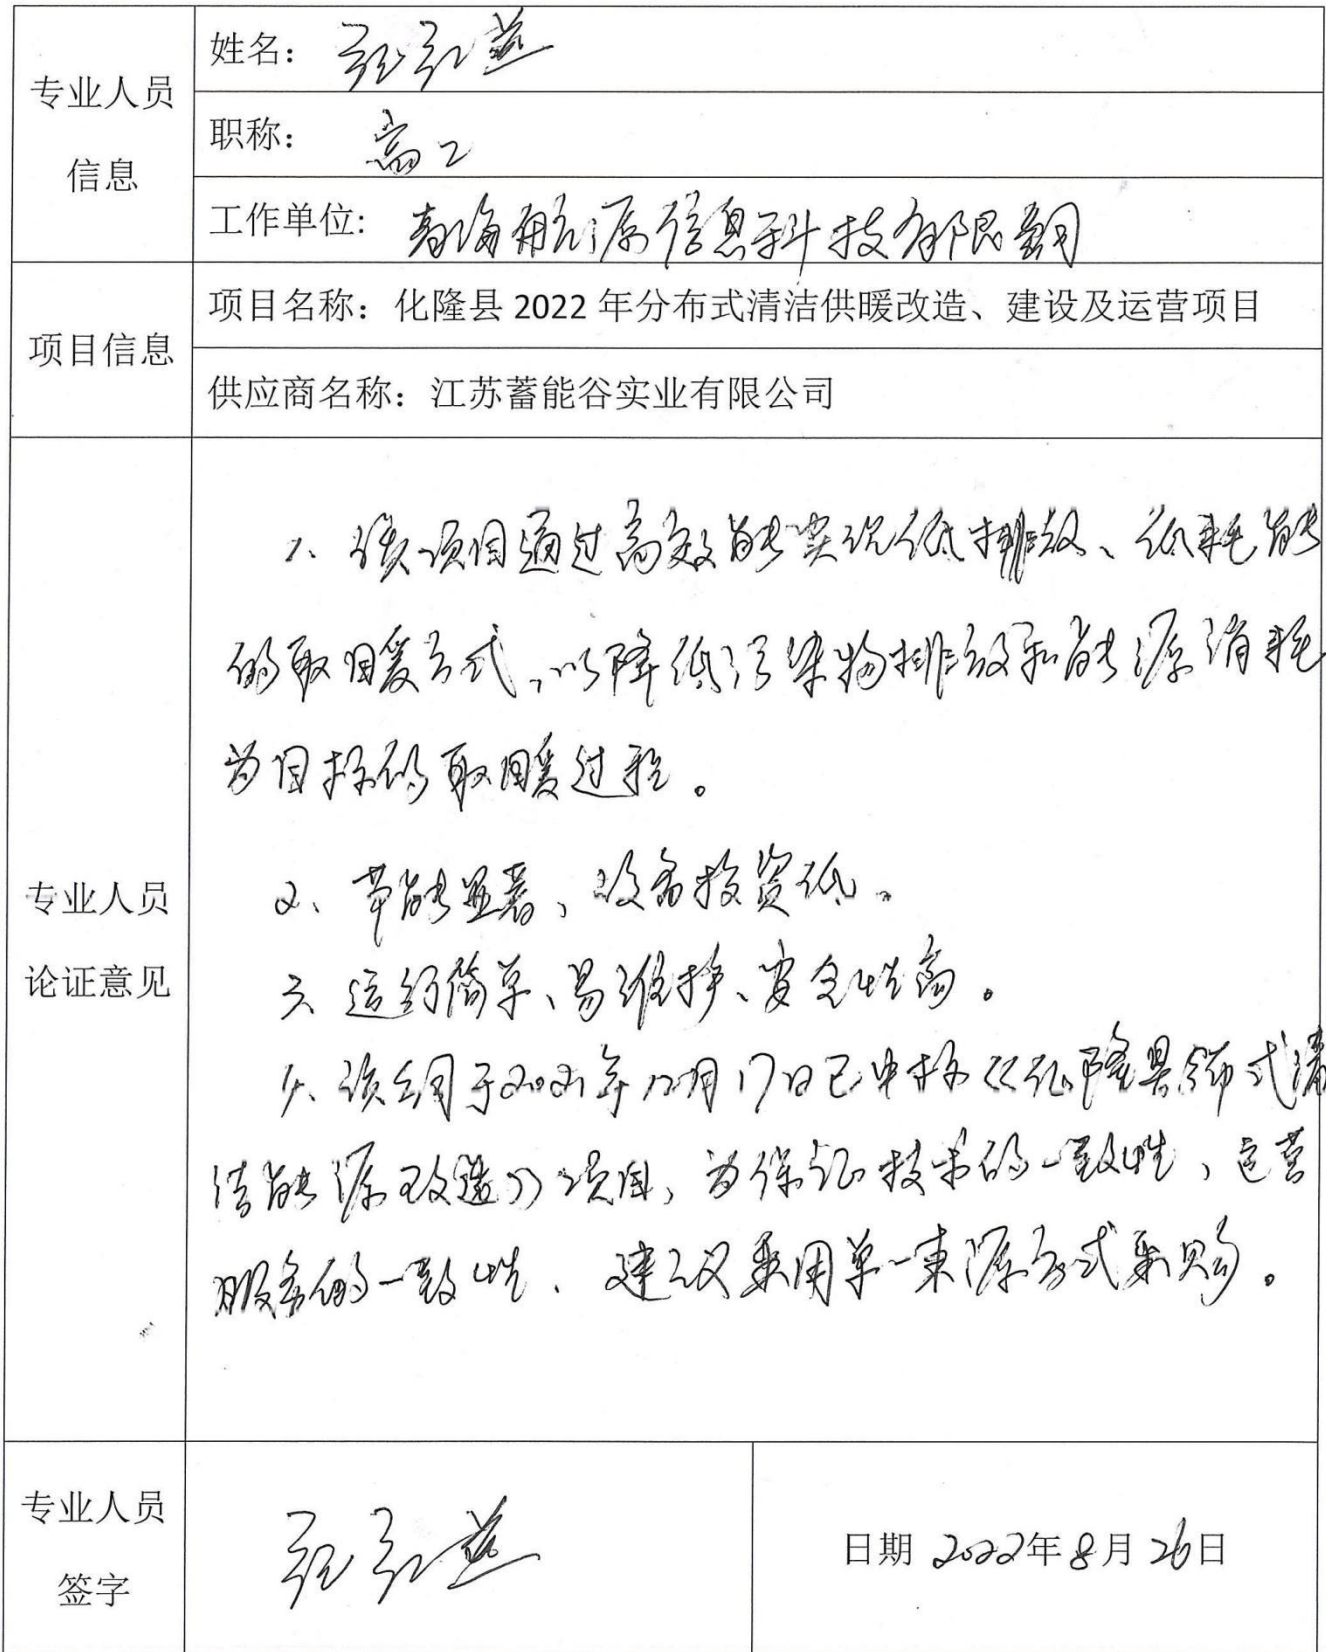 专业人员
信息
姓名：张
职称：高工
工作单位：青海航源信息科技有限公司
项目信息
项目名称：化隆县 2022 年分布式清洁供暖改造、建设及运营项目
供应商名称：江苏蓄能谷实业有限公司
专业人员
论证意见
1、该项目通过高效能实现低排放、低耗能
的取暖方式，以降低污染物排放和能源消耗
为目标的取暖过程。
2、节能显著、设备投资低。
3、运行简单、易维护、安全性高。
4、该公司于2021年12月17日已中标《化隆县分布式清
洁能源改造》项目，为保证技术的一致性，运营
服务的一致性、建议采用单一来源方式采购。
专业人员
签字
张
日期 2022年8月26日